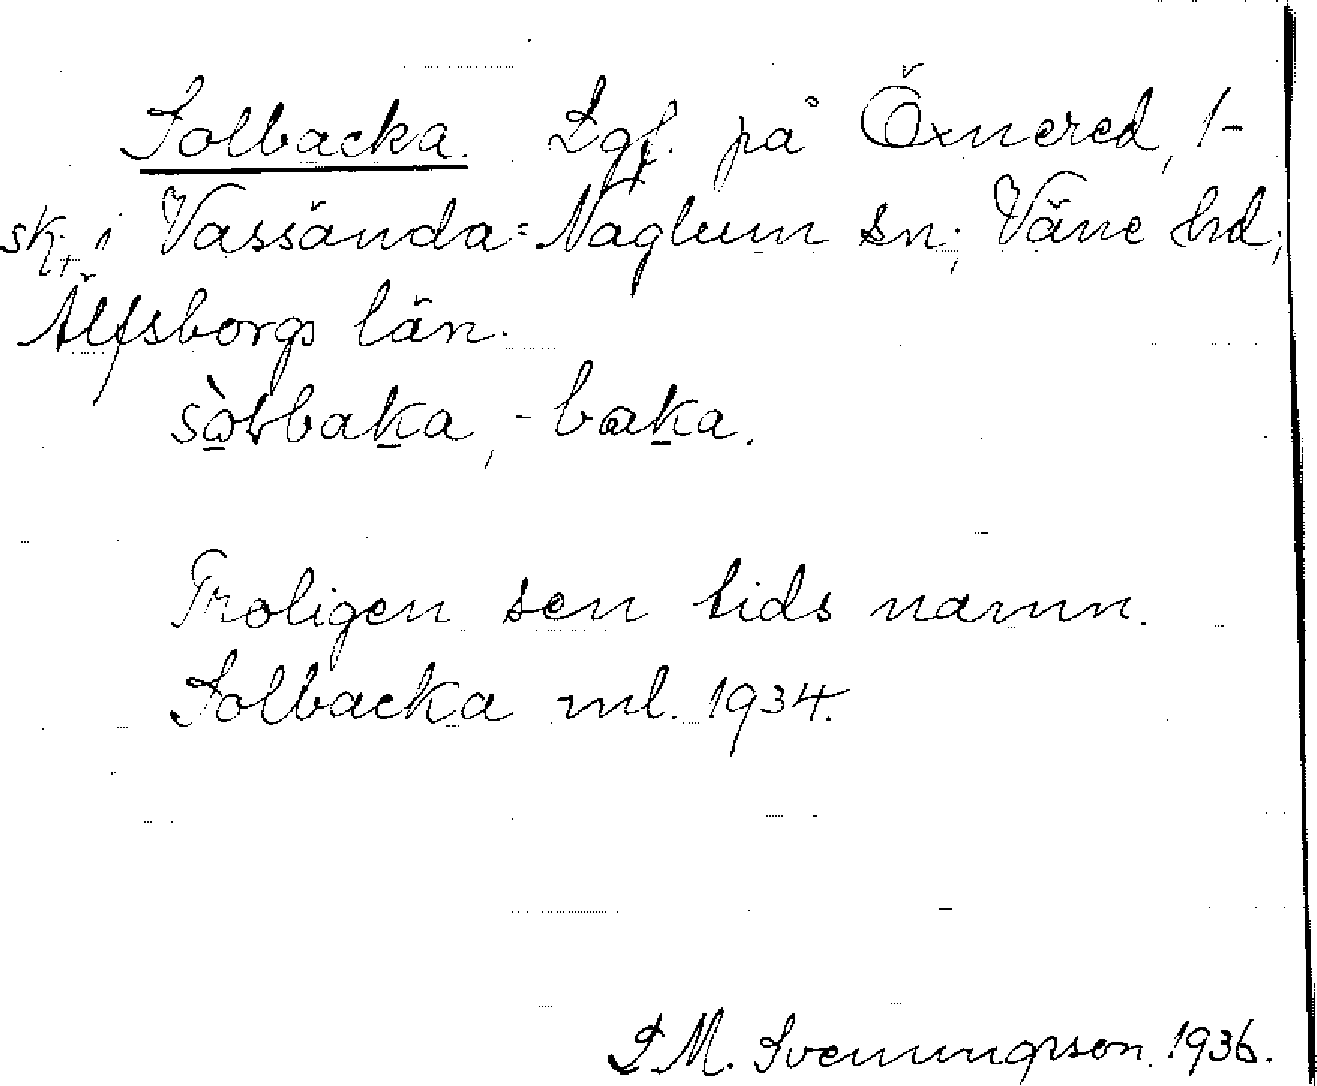 Solbacka. Lgf. på Öxnered, 1-
sk., i Vassända-Naglum sn; Väne hd;
Älfsborgs län.
sòlbaka, -baka.
Troligen sen tids namn.
Solbacka ml. 1934.
S M. Svenungsson. 1936.